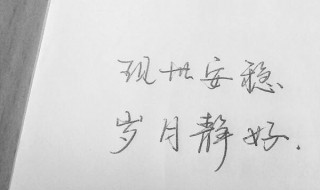 现世安稳、
岁月静好.